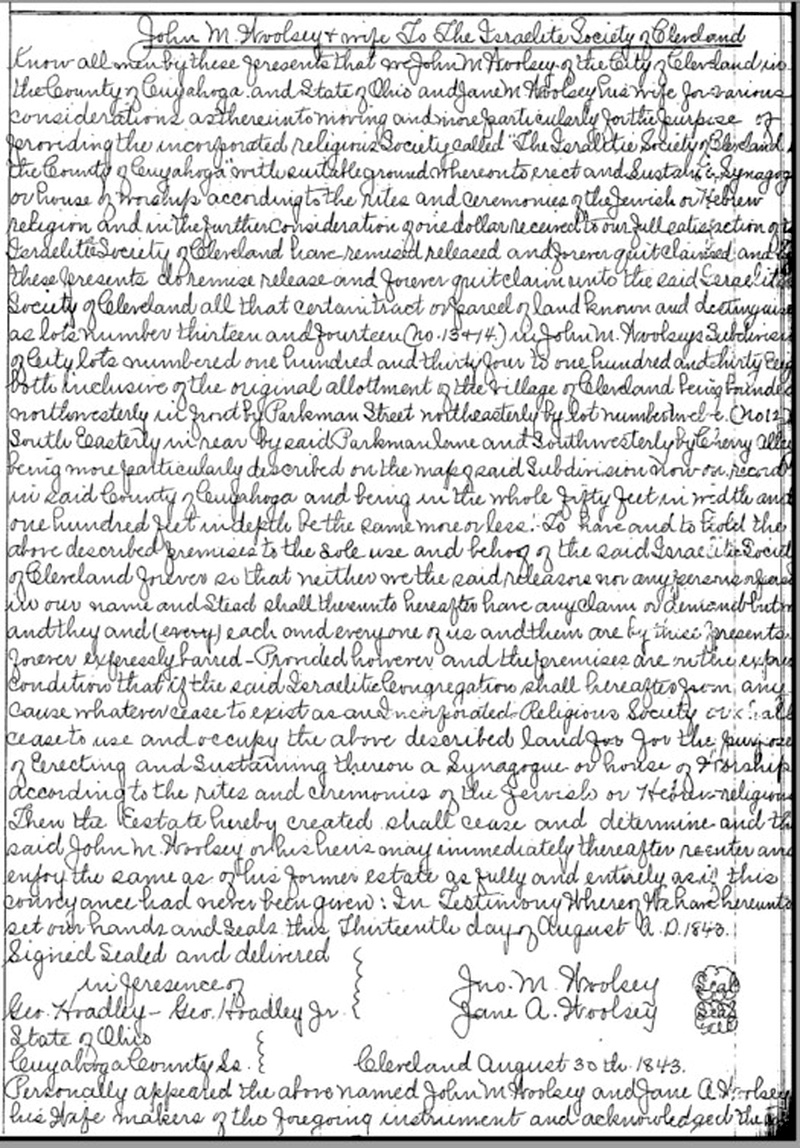 John M. Woolsey & wife To The Israelite Society of Cleveland
Know all men by these presents that we John M Woolsey of the City of Cleveland in
the County of Cuyahoga and State of Ohio and Jane M Woolsey his wife for various
considerations as thereinto moving and more particularly for the purpose of
providing the incorporated religious Society called "The Israelitic Society of Cleveland
the County of Cuyahoga" with suitable ground whereon to erect and Sustain a Synagog
or house of worship according to the rites and ceremonies of the Jewish or Hebrew
religion and in the further consideration of one dollar received to our full satisfaction of
Israelitic Society of Cleveland have remised released and forever quit claimed and
these presents do remise release and forever quit claim unto the said Israelitic
Society of Cleveland all that certain tract or parcel of land known and
as lots number thirteen and fourteen (no. 13 & 14.) in John M. Woolseys Subdivis
of City lots numbered one hundred and thirty four to one hundred and thirty
both inclusive of the original allottment of the village of Cleveland being bounded
northwesterly in front by Parkman Street northeasterly by lot number (no 12
South Easterly in rear by said Parkman lane and Southwesterly by Cherry Alley
being more particularly described on the map of said Subdivision now on record
in said County of Cuyahoga and being in the whole fifty feet in width and
one hundred feet in depth be the same more or less. To have and to hold the
above described premises to the sole use and behoof of the said Israelitic Societ
of Cleveland forever so that neither we the said releasors nor any persons or
in our name and Stead shall thereunto hereafter have any claim or demand but
and they and (every) each and every one of us and them are by these presents
forever expressly barred - Provided however and the premises are on the expre
condition that if the said Israelitic Congregation shall hereafter from any
cause whatever cease to exist as an Incorporated Religious Society or shall
cease to use and occupy the above described land for for the purpose
of Erecting and Sustaining thereon a Synagogue or house of Worship
according to the rites and ceremonies of the Jewish or Hebrew religion
Then the Eestate hereby created shall cease and determine and th
said John M. Woolsey or his heirs may immediately thereafter reenter and
enjoy the same as of his former estate as fully and entirely as if this
conveyance had never been given: In Testimony Whereof We have hereunto
set our hands and Seals this Thirteenth day of August A.D. 1843.
Signed Sealed and delivered
in presence of Jno. M. Woolsey Seal
Geo. Hoadley - Geo. Hoadley Jr Jane A. Woolsey Seal
State of Ohio
Cuyahoga County Ss. Cleveland August 30th 1843.
Personally appeared the above named John M Woolsey and Jane A. Woolsey
his Wife makers of the foregoing instrument and acknowledged the